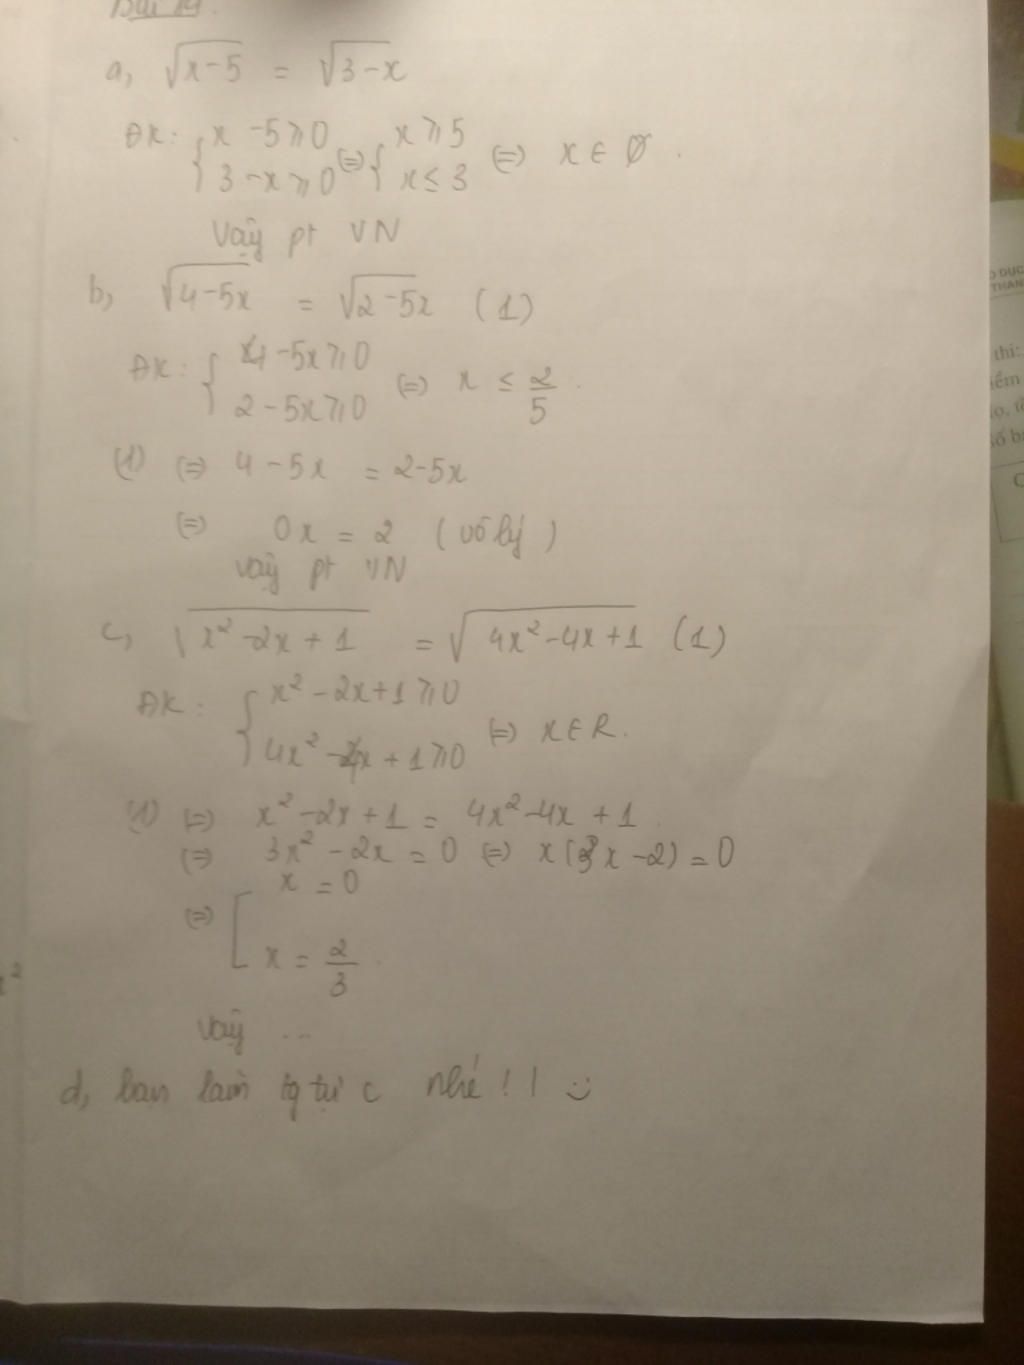 Bài 14.
a, √x-5 = √3-x
ĐK: { x -5 ⩾ 0 (=) { x ⩾ 5 (=) x ∈ Ø .
3 -x ⩾ 0 x ≤ 3
Vậy pt VN
b, √4-5x = √2-5x (1)
ĐK: { 4 -5x ⩾ 0 (=) x ≤ 2/5 .
2 - 5x ⩾ 0
(1) (=) 4 - 5x = 2-5x
(=) 0x = 2 (vô lý)
vậy pt VN
c, √x² -2x + 1 = √4x² -4x +1 (1)
ĐK: { x² - 2x+1 ⩾ 0 (=) x ∈ R.
4x² -4x + 1 ⩾ 0
(1) (=) x² -2x + 1 = 4x² -4x + 1
(=) 3x² - 2x = 0 (=) x(3x -2) = 0
x = 0
(=) [
x = 2/3 .
vậy ...
d, bạn làm tg tự c nhé ! !
O DUC
THAN
thi:
iểm